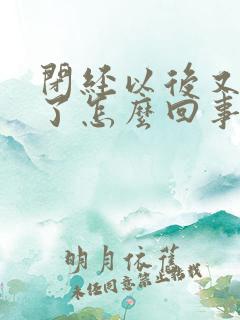 閉経以後又
了怎麼回事
明月依舊
未经同意禁止转载